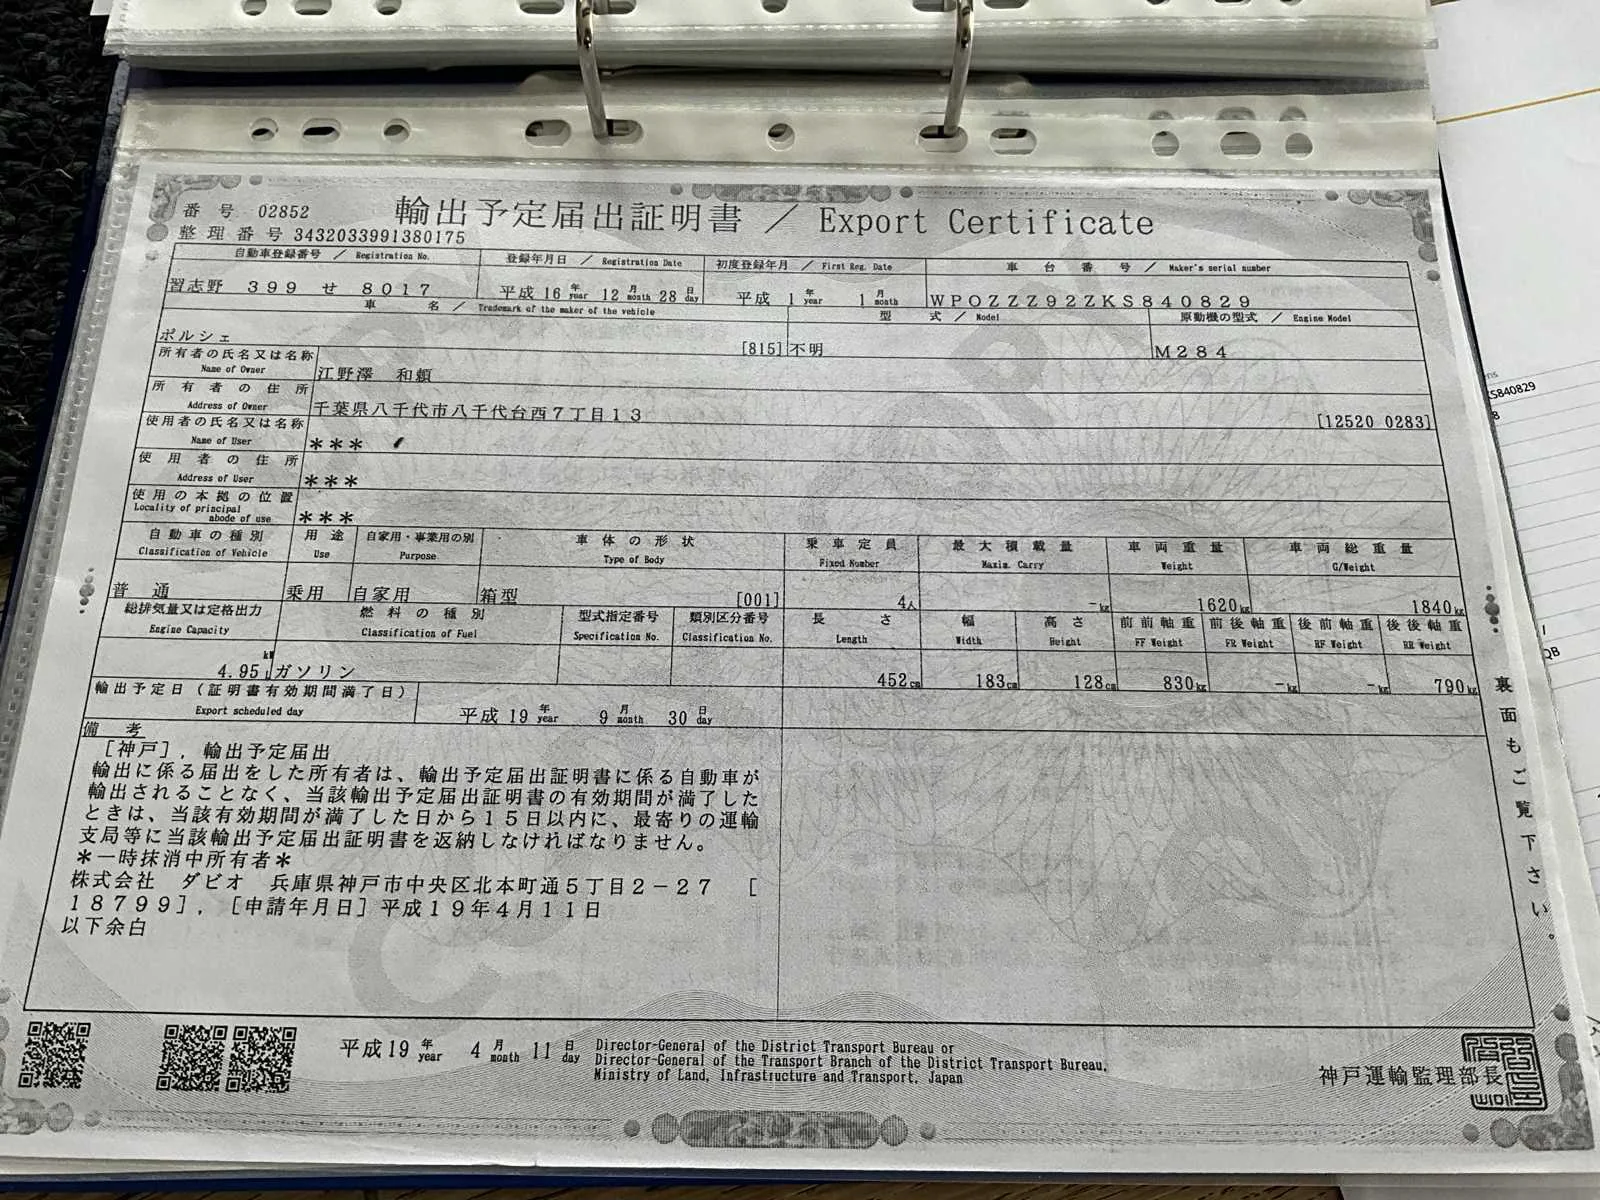 番号 02852
輸出予定届出証明書 / Export Certificate
整理番号 3432033991380175
自動車登録番号 / Registration No.
登録年月日 / Registration Date
初度登録年月 / First Reg. Date
車台番号 / Maker's serial number
習志野 399 せ 8017
平成 16 年 year 12 月 month 28 日 day
平成 1 年 year 1 月 month
WPOZZZ92ZKS840829
車名 / Trademark of the maker of the vehicle
型式 / Model
原動機の型式 / Engine Model
ポルシェ [815]
不明
M284
所有者の氏名又は名称 Name of Owner
江野澤 和頼
所有者の住所 Address of Owner
千葉県八千代市八千代台西7丁目13 [12520 0283]
使用者の氏名又は名称 Name of User
***
使用者の住所 Address of User
***
使用の本拠の位置 Locality of principal abode of use
***
自動車の種別 Classification of Vehicle
用途 Use
自家用・事業用の別 Purpose
車体の形状 Type of Body
乗車定員 Fixed Number
最大積載量 Maxim. Carry
車両重量 Weight
車両総重量 G/Weight
普通
乗用
自家用
箱型 [001]
4人
-kg
1620kg
1840kg
総排気量又は定格出力 Engine Capacity
燃料の種別 Classification of Fuel
型式指定番号 Specification No.
類別区分番号 Classification No.
長さ Length
幅 Width
高さ Height
前前軸重 FF Weight
前後軸重 FR Weight
後前軸重 RF Weight
後後軸重 RR Weight
kW
4.95 L
ガソリン
452cm
183cm
128cm
830kg
-kg
-kg
790kg
輸出予定日(証明書有効期間満了日) Export scheduled day
平成 19 年 year 9 月 month 30 日 day
備考
[神戸],輸出予定届出
輸出に係る届出をした所有者は、輸出予定届出証明書に係る自動車が
輸出されることなく、当該輸出予定届出証明書の有効期間が満了した
ときは、当該有効期間が満了した日から15日以内に、最寄りの運輸
支局等に当該輸出予定届出証明書を返納しなければなりません。
*一時抹消中所有者*
株式会社 ダビオ 兵庫県神戸市中央区北本町通5丁目2-27 [
18799],[申請年月日]平成19年4月11日
以下余白
裏面もご覧下さい。
平成 19 年 year 4 月 month 11 日 day
Director-General of the District Transport Bureau or
Director-General of the Transport Branch of the District Transport Bureau,
Ministry of Land, Infrastructure and Transport, Japan
神戸運輸監理部長
S840829
8
QB